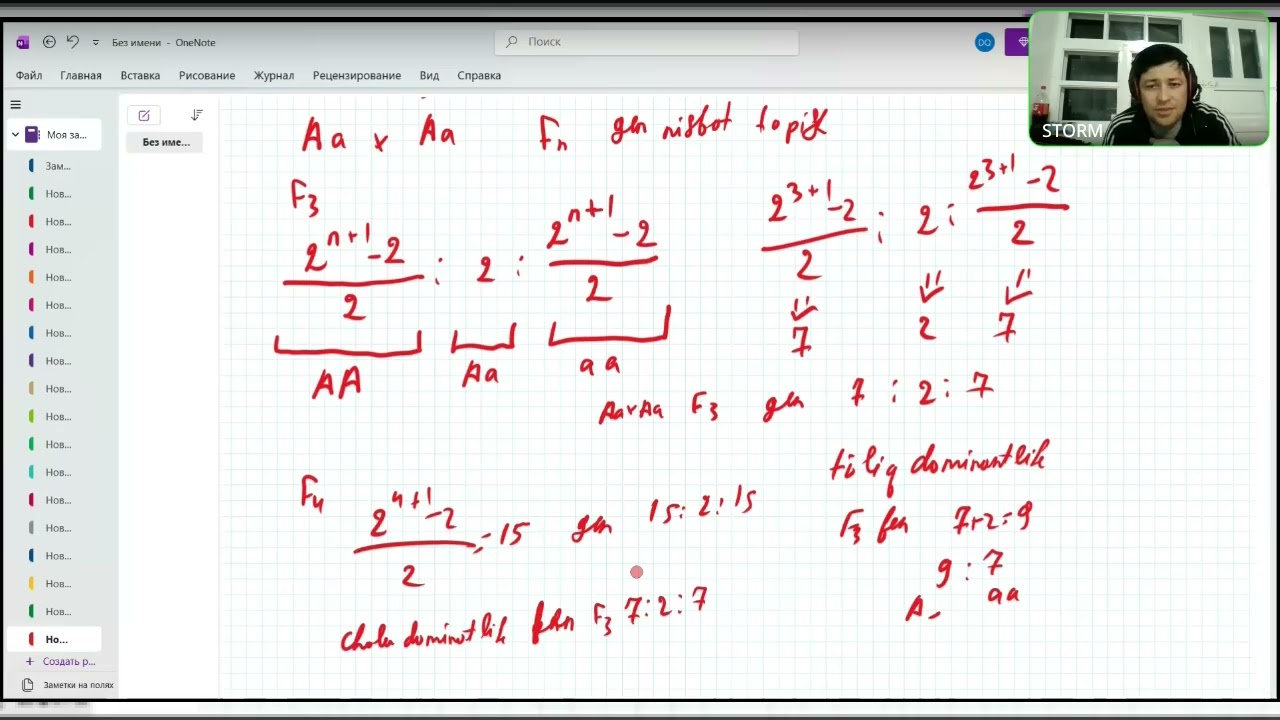 Без имени - OneNote
Поиск
DO
Файл Главная Вставка Рисование Журнал Рецензирование Вид Справка
STORM
Моя за...
Без име...
Зам...
Нов...
Нов...
Нов...
Нов...
Нов...
Нов...
Нов...
Нов...
Нов...
Нов...
Нов...
Нов...
Нов...
Нов...
Нов...
Нов...
Но...
+ Создать р...
Заметки на полях
Aa x Aa Fn gen nisbat topish
F3
2^(n+1) - 2 / 2 : 2 : 2^(n+1) - 2 / 2
AA Aa aa
2^(3+1) - 2 / 2 : 2 : 2^(3+1) - 2 / 2
7 2 7
Aa x Aa F3 gen 7 : 2 : 7
F4 2^(4+1) - 2 / 2 = 15 gen 15 : 2 : 15
chala dominatlik fen F3 7 : 2 : 7
to'liq dominantlik
F3 fen 7+2=9
9 : 7
A- aa